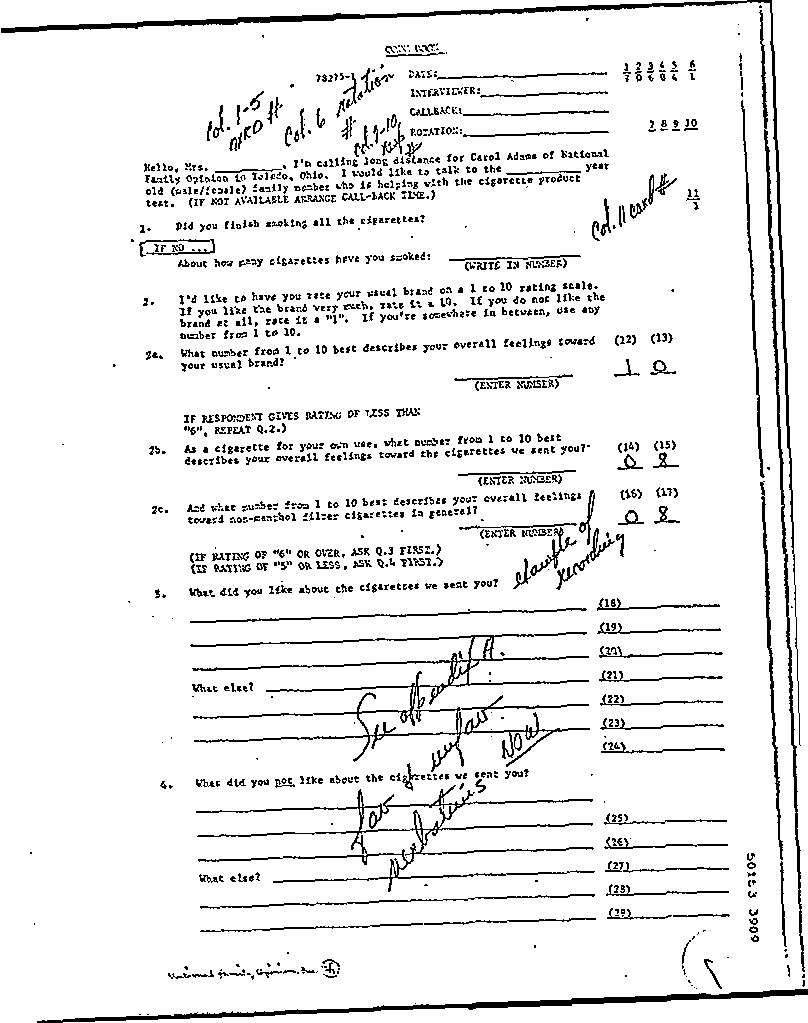 CODE BOOK
78275-1
DATE:
1 2 3 4 5 6
7 0 6 0 4 1
INTERVIEWER:
CALLBACK:
ROTATION:
7 8 9 10
Col. 1-5
Col. 6 Rotation
#
Col. 7-10
#
Hello, Mrs. ________, I'm calling long distance for Carol Adams of National
Family Opinion in Toledo, Ohio. I would like to talk to the ________ year
old (male/female) family member who is helping with the cigarette product
test. (IF NOT AVAILABLE ARRANGE CALL-BACK TIME.)
Col. 11 card #
11
1
1. Did you finish smoking all the cigarettes?
IF NO ...
About how many cigarettes have you smoked:
(WRITE IN NUMBER)
2. I'd like to have you rate your usual brand on a 1 to 10 rating scale.
If you like the brand very much, rate it a 10. If you do not like the
brand at all, rate it a "1". If you're somewhere in between, use any
number from 1 to 10.
2a. What number from 1 to 10 best describes your overall feelings toward (12) (13)
your usual brand?
1 0
(ENTER NUMBER)
IF RESPONDENT GIVES RATING OF LESS THAN
"6", REPEAT Q.2.)
2b. As a cigarette for your own use, what number from 1 to 10 best (14) (15)
describes your overall feelings toward the cigarettes we sent you?
0 8
(ENTER NUMBER)
2c. And what number from 1 to 10 best describes your overall feelings (16) (17)
toward non-menthol filter cigarettes in general?
0 8
(ENTER NUMBER)
(IF RATING OF "6" OR OVER, ASK Q.3 FIRST.)
(IF RATING OF "5" OR LESS, ASK Q.4 FIRST.)
example of
recording
3. What did you like about the cigarettes we sent you?
(18)
(19)
(20)
What else?
(21)
(22)
(23)
(24)
See appendix A.
fav & unfav
verbatims
NOW
4. What did you not like about the cigarettes we sent you?
(25)
(26)
What else?
(27)
(28)
(29)
50153 3909
National Family Opinion, Inc.